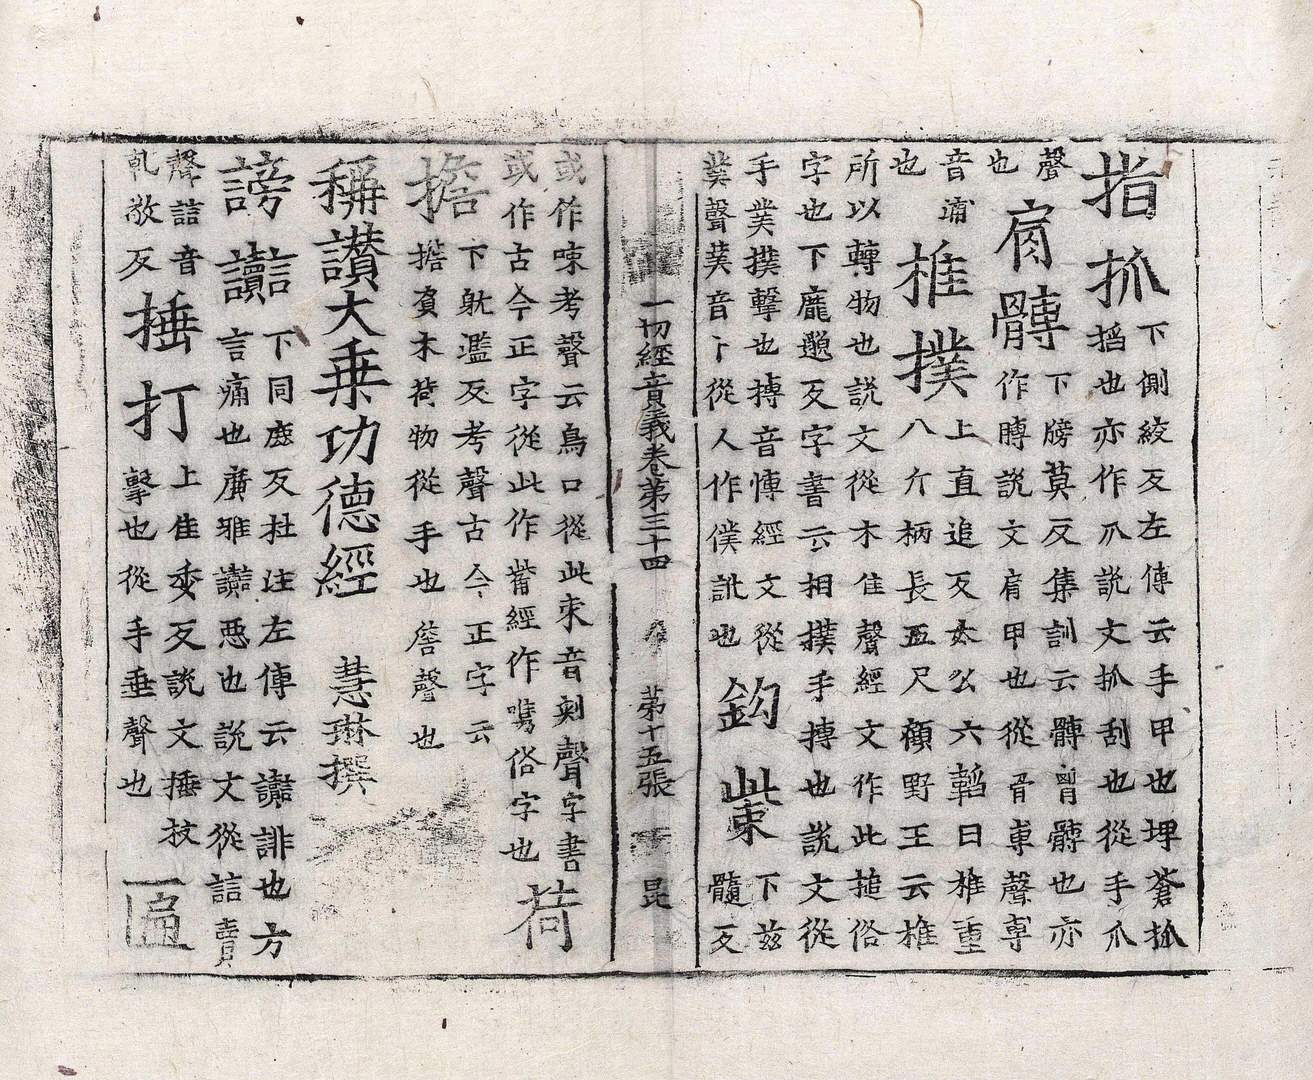 指抓
下側絞反左傳云手甲也埤蒼抓
搯也亦作爪說文抓刮也從手爪
聲
也
肩髆
下牓莫反集訓云髆髆也亦
作膊說文肩甲也從骨尃聲尃
音浦
也
椎撲
上直追反太公六韜曰椎重
八斤柄長五尺顧野王云椎
所以轉物也說文從木隹聲經文作此搥俗
字也下龐邈反字書云相撲手搏也說文從
手菐撲擊也搏音博經文從
菐聲菐音卜從人作僕訛也
鉤㭰
下茲
髓反
一切經音義卷第三十四 第十五張 昆
或作㖢考聲云鳥口從此朿音刺聲字書
或作古今正字從此作觜經作嘴俗字也
荷
擔
下躭濫反考聲古今正字云
擔負木荷物從手也詹聲也
稱讚大乘功德經 慧琳撰
謗讟
下同鹿反杜注左傳云讟誹也方
言痛也廣雅讟惡也說文從誩賣
聲誩音
乹敬反
捶打
上隹委反說文捶杖
擊也從手垂聲也
匾